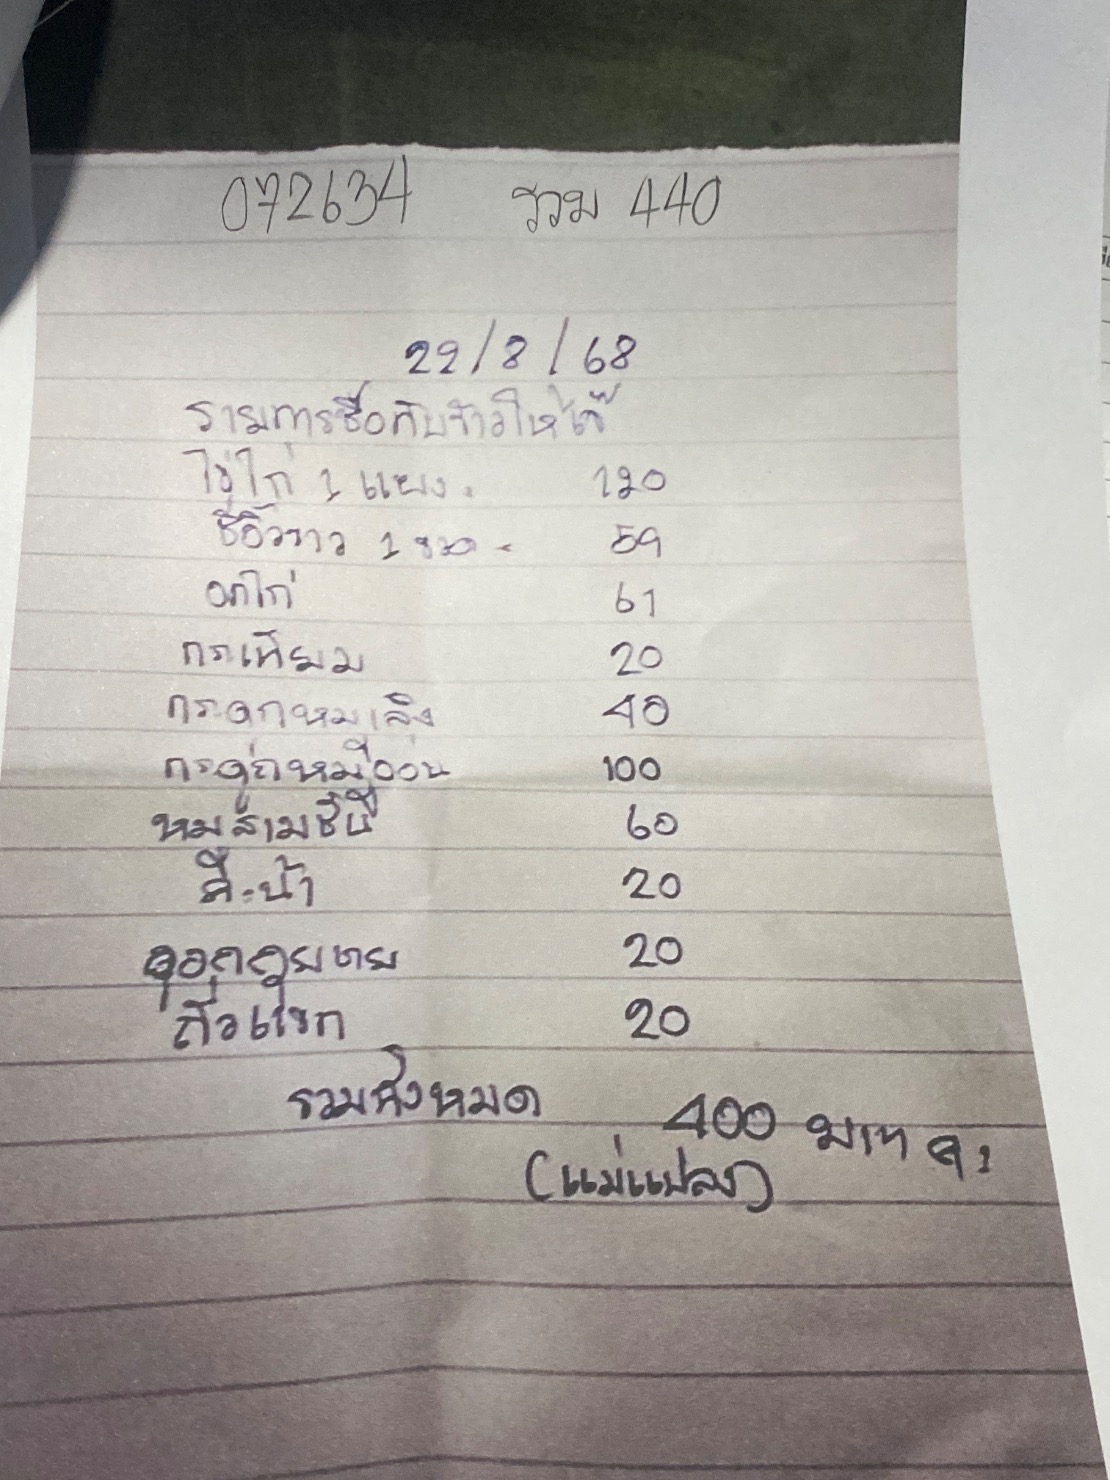 072634 รวม 440
22/8/68
รายการซื้อกับข้าวให้เจ๊
ไข่ไก่ 1 แผง. 120
ซีอิ้วขาว 1 ขวด - 59
อกไก่ 61
กระเทียม 20
กระดูกหมูเล้ง 40
กระดูกหมูอ่อน 100
หมูสามชั้น 60
คะน้า 20
ดอกกุยชาย 20
ถั่วแขก 20
รวมทั้งหมด 400 บาท
(แม่แปลง)